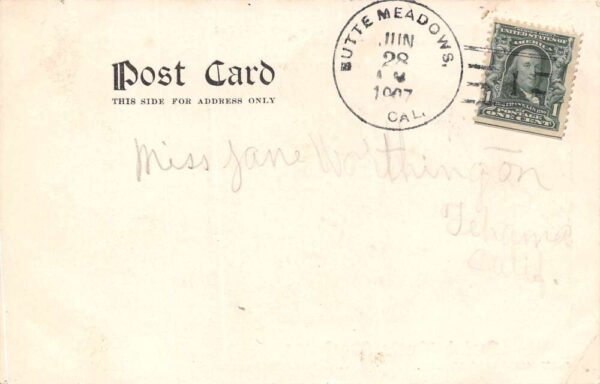 BUTTE MEADOWS,
JUN
28
A M
1907
CAL.
UNITED STATES OF AMERICA
FRANKLIN
POSTAGE
ONE CENT
1
Post Card
THIS SIDE FOR ADDRESS ONLY
Miss Jane Worthington
Tehama
Calif.